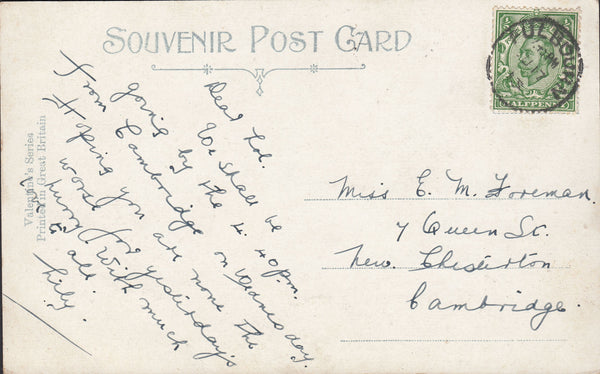 SOUVENIR POST CARD
Valentine's Series
Printed in Great Britain
HALFPENNY
FULBOURN
Dear Lol.
We shall be
going by the 4.40 p.m.
from Cambridge on Wednesday.
Hoping you are none the
worse for yesterday's
hurry. With much
to all.
Lily.
Miss E. M. Foreman.
7 Queen St.
New Chesterton
Cambridge.